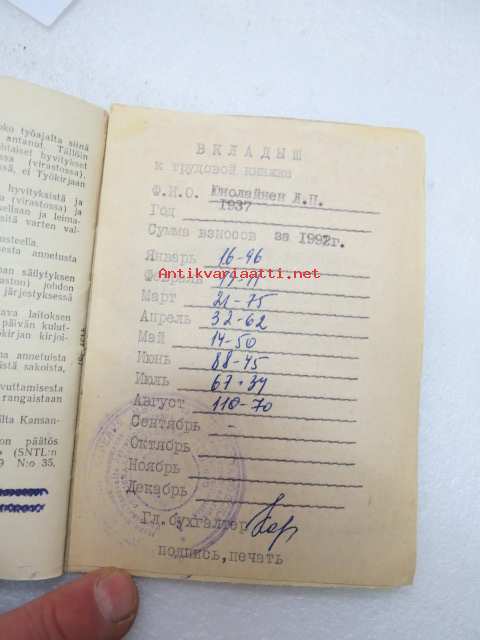 oko työajalta siinä
antanut. Tällöin
htaiset hyvitykset
ssa (virastossa).
ssä, ei Työkirjaan
hyvityksistä ja
(virastossa) ja
sellaan ja leima-
sitä varten val-
usteella.
esta annetusta
an säilytyksen
aston) johdon
järjestyksessä
ava laitoksen
päivän kulut-
kirjan kirjoi-
na annetuista
istä sakoista,
vuttamisesta
rangaistaan
ilta Kansan-
on päätös
(SNTL:n
9 N:o 35,
ВКЛАДЫШ
к трудовой книжке
Ф.И.О. Юнолайнен А.Н.
Год 1937
Сумма взносов за 1992г.
Январь 16-96
Antikvariaatti.net
Февраль
Март 21-75
Апрель 32-62
Май 14-50
Июнь 88-45
Июль 67-34
Август 110-70
Сентябрь -
Октябрь
Ноябрь
Декабрь
Гл.бухгалтер
подпись,печать